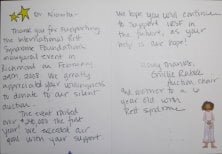 Dr Nowta-
Thank you for supporting
the International Rett
Syndrome Foundation's
inaugural event in
Richmond on February
28th, 2009. We greatly
appreciated your willingness
to donate to our silent
auction.
The event raised
over $ the first
year! We exceeded our
goal with your support.
We hope you will continue
to support IRSF in
the future, as your
help is our hope!
Many thanks,
Auction Chair
and mother to a 6
year old with
Rett syndrome